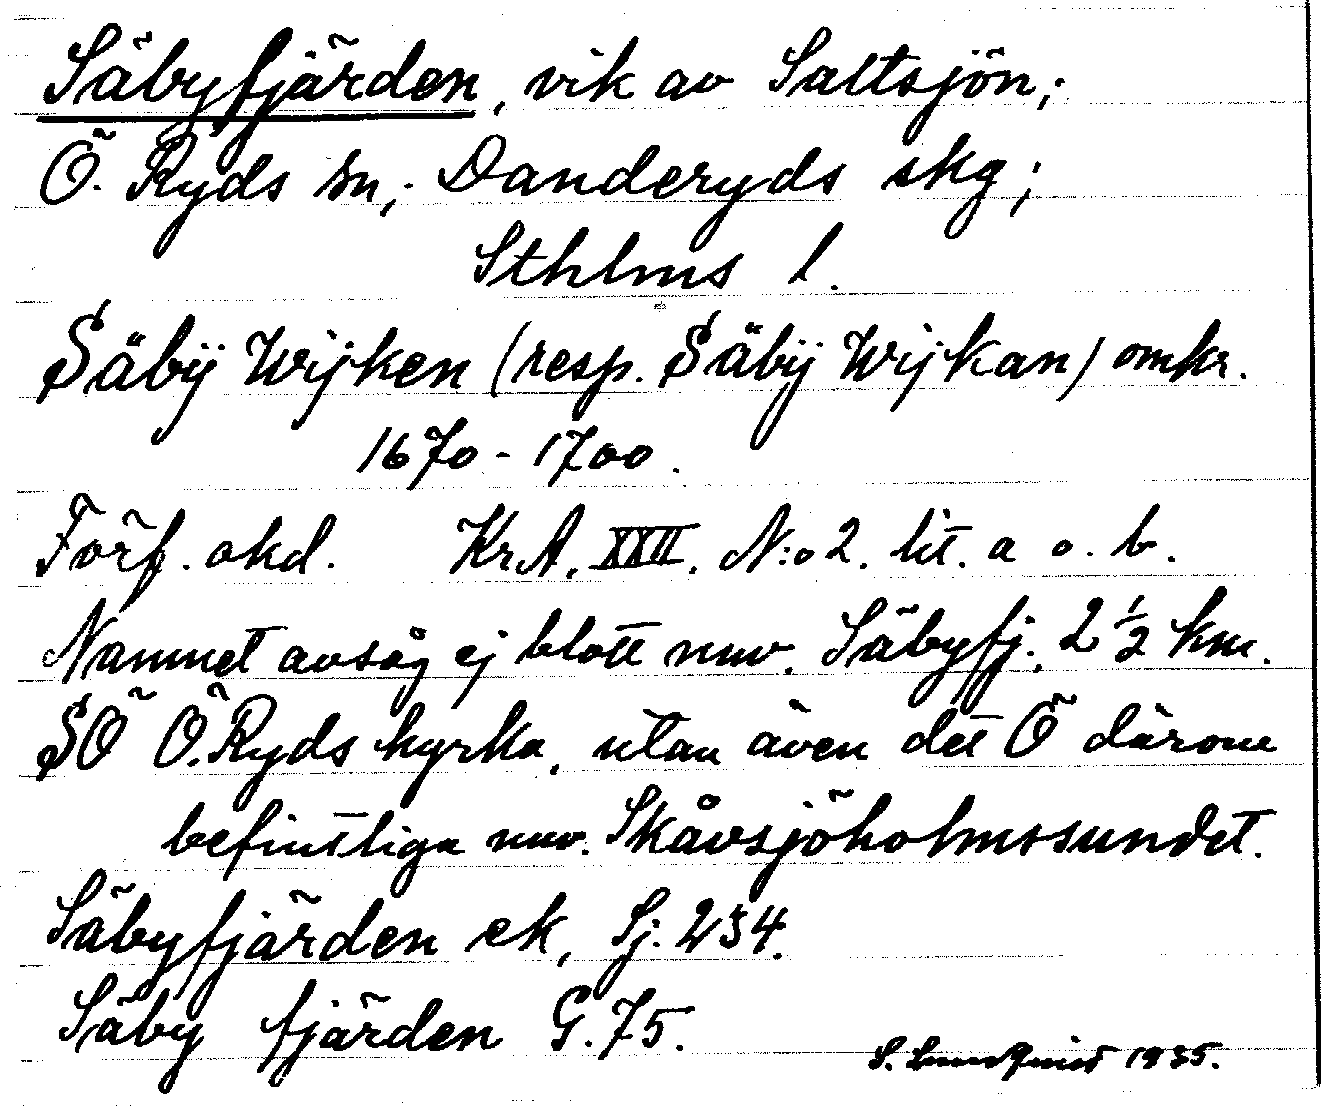 Säbyfjärden, vik av Saltsjön;
Ö. Ryds sn; Danderyds skg;
Sthlms l.
Säbÿ Wijken (resp. Säbÿ Wijkan) omkr.
1670-1700.
Förf. okd. KrA. XXII. N:o 2. lit. a o. b.
Namnet avsåg ej blott nuv. Säbyfj. 2 1/2 km.
SÖ Ö. Ryds kyrka, utan även det Ö därom
befintliga nuv. Skåvsjöholmssundet.
Säbyfjärden ek, Sj. 234.
Säby fjärden G. 75.
S. Lundquist 1935.